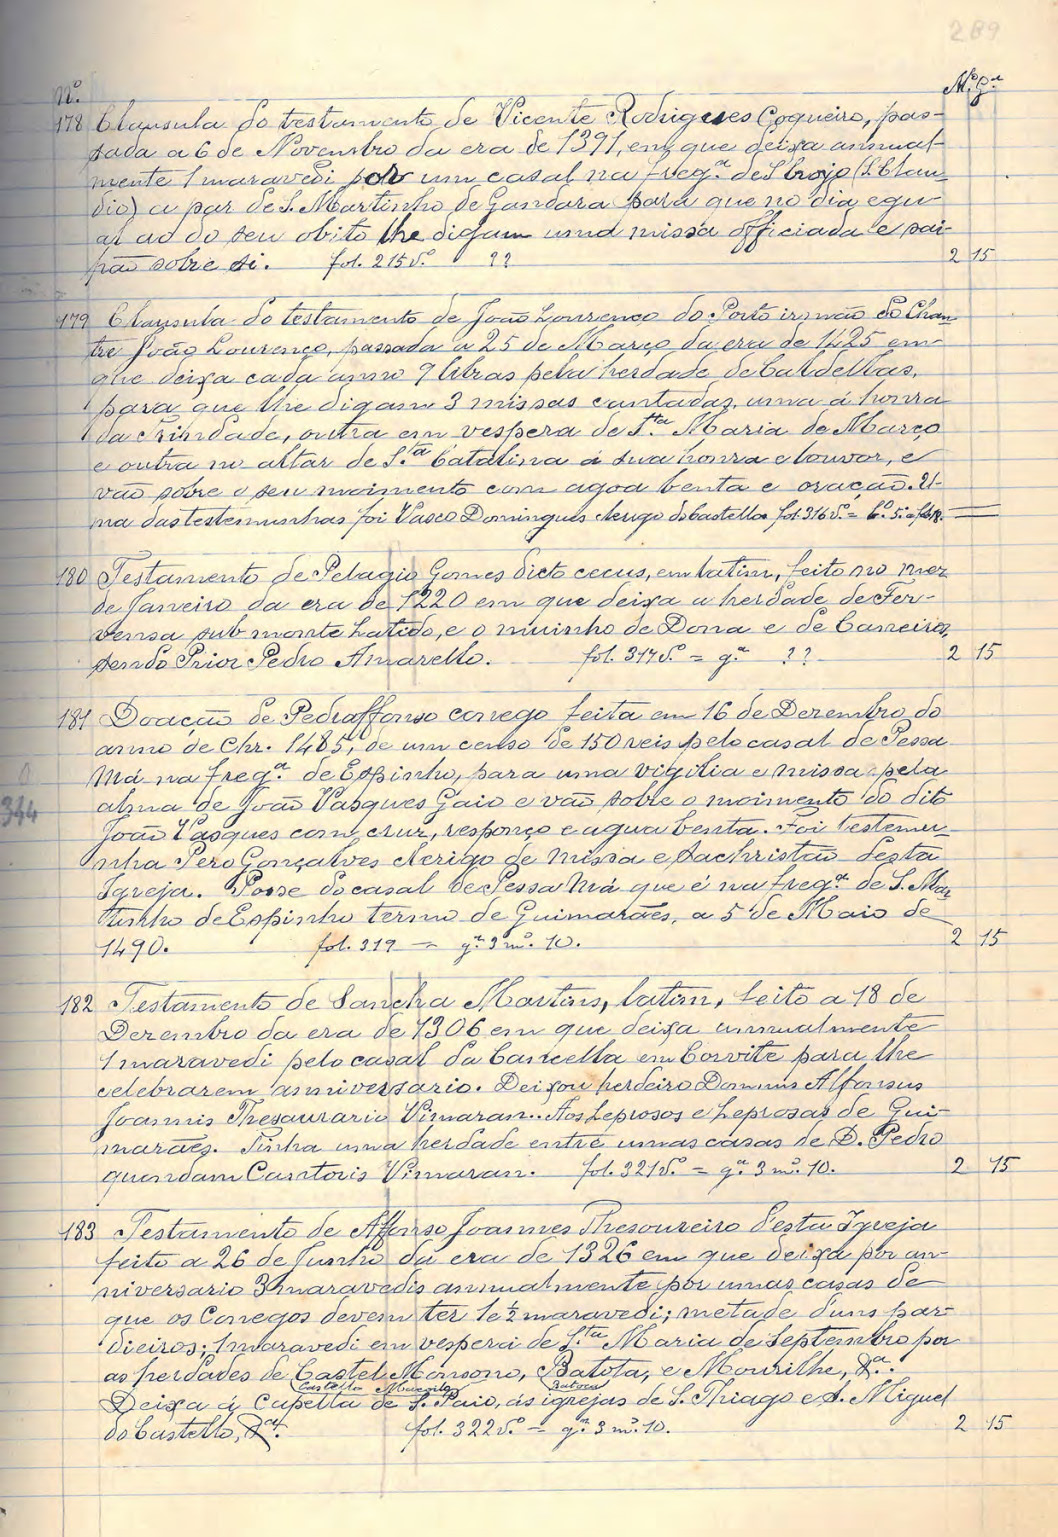 289
Nº. Mº Gª
178 Clausula do testamento de Vicente Rodrigues Coqueiro, pas-
sada a 6 de Novembro da era de 1391, em que deixa annual-
mente 1 maravedi por um casal na freg.ª de
dio) a par de S. Martinho de Gandara para que no dia egu-
al ao do seu obito lhe digam uma missa officiada e sai-
rão sobre si. fol. 215vº. ?? 2 15
179 Clausula do testamento de João Lourenço do Porto irmão do Chan-
tre João Lourenço, passada a 25 de Março da era de 1425 em
que deixa cada anno 9 libras pela herdade de Caldellas,
para que lhe digam 3 missas cantadas, uma á honra
da Trindade, outra em vespera de S.ta Maria de Março
e outra no altar de S.ta Catalina á sua honra e louvor, e
vão sobre o seu moimento com agoa benta e oração. U-
ma das testemunhas foi Vasco Domingues clerigo do Castello. fol. 316vº. =
180 Testamento de Pelagio Gomes dicto cecus, em latim, feito no mez
de Janeiro da era de 1220 em que deixa a herdade de Fer-
vensa sub monte Latido, e o muinho de Dona e de Carreiros,
sendo Prior Pedro Amarello. fol. 317vº = g.ª ?? 2 15
181 Doação de Pedraffonso conego feita em 16 de Dezembro do
anno de Chr. 1485, de um censo de 150 reis pelo casal de Pessa
Má na freg.ª de Espinho, para uma vigilia e missa pela
alma de João Vasques Gaio e vão sobre o moimento do dito
344
João Vasques com cruz, responço e agua benta. Foi testemu-
nha Pero Gonçalves clerigo de missa e sachristão desta
Igreja. Posse do casal de Pessa Má que é na freg.ª de S. Mar
tinho de Espinho termo de Guimarães, a 5 de Maio de
1490. fol. 319 = g.ª 3 mº. 10. 2 15
182 Testamento de Sancha Martins, latim, feito a 18 de
Dezembro da era de 1306 em que deixa annualmente
1 maravedi pelo casal da Cancella em Corvite para lhe
celebrarem anniversario. Deixou herdeiro Dominus Alfonsus
Joannis Thesaurario Vimaran.. Aos Leprosos e Leprosas de Gui-
marães. Tinha uma herdade entre umas casas de D. Pedro
quondam Cantoris Vimaran. fol. 321vº. = g.ª 3 mº. 10. 2 15
183 Testamento de Affonso Joannes Thesoureiro desta Igreja
feito a 26 de Junho da era de 1326 em que deixa por an-
niversario 3 maravedis annualmente por umas casas de
que os Conegos devem ter 1 e ½ maravedi; metade d'uns par-
dieiros; 1 maravedi em vespera de S.ta Maria de Septembro por
as herdades de Castel Monsono, Batota, e Mourilhe, &ª.
Deixa á Capella de S. Paio, ás igrejas de S. Thiago e S. Miguel
do Castello, &ª. fol. 322vº. = g.ª 3 mº. 10. 2 15